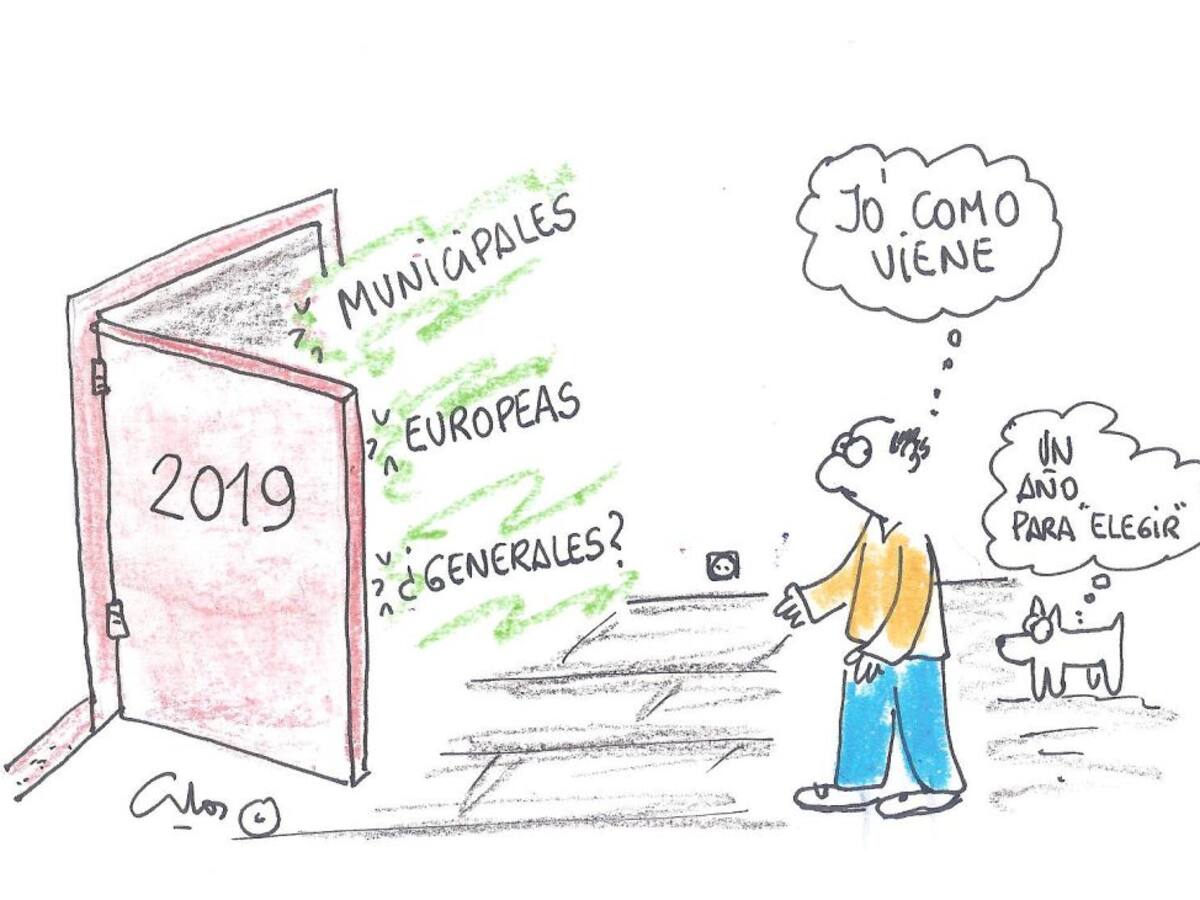 MUNICIPALES
EUROPEAS
¿GENERALES?
2019
JÓ COMO
VIENE
UN
AÑO
PARA "ELEGIR"